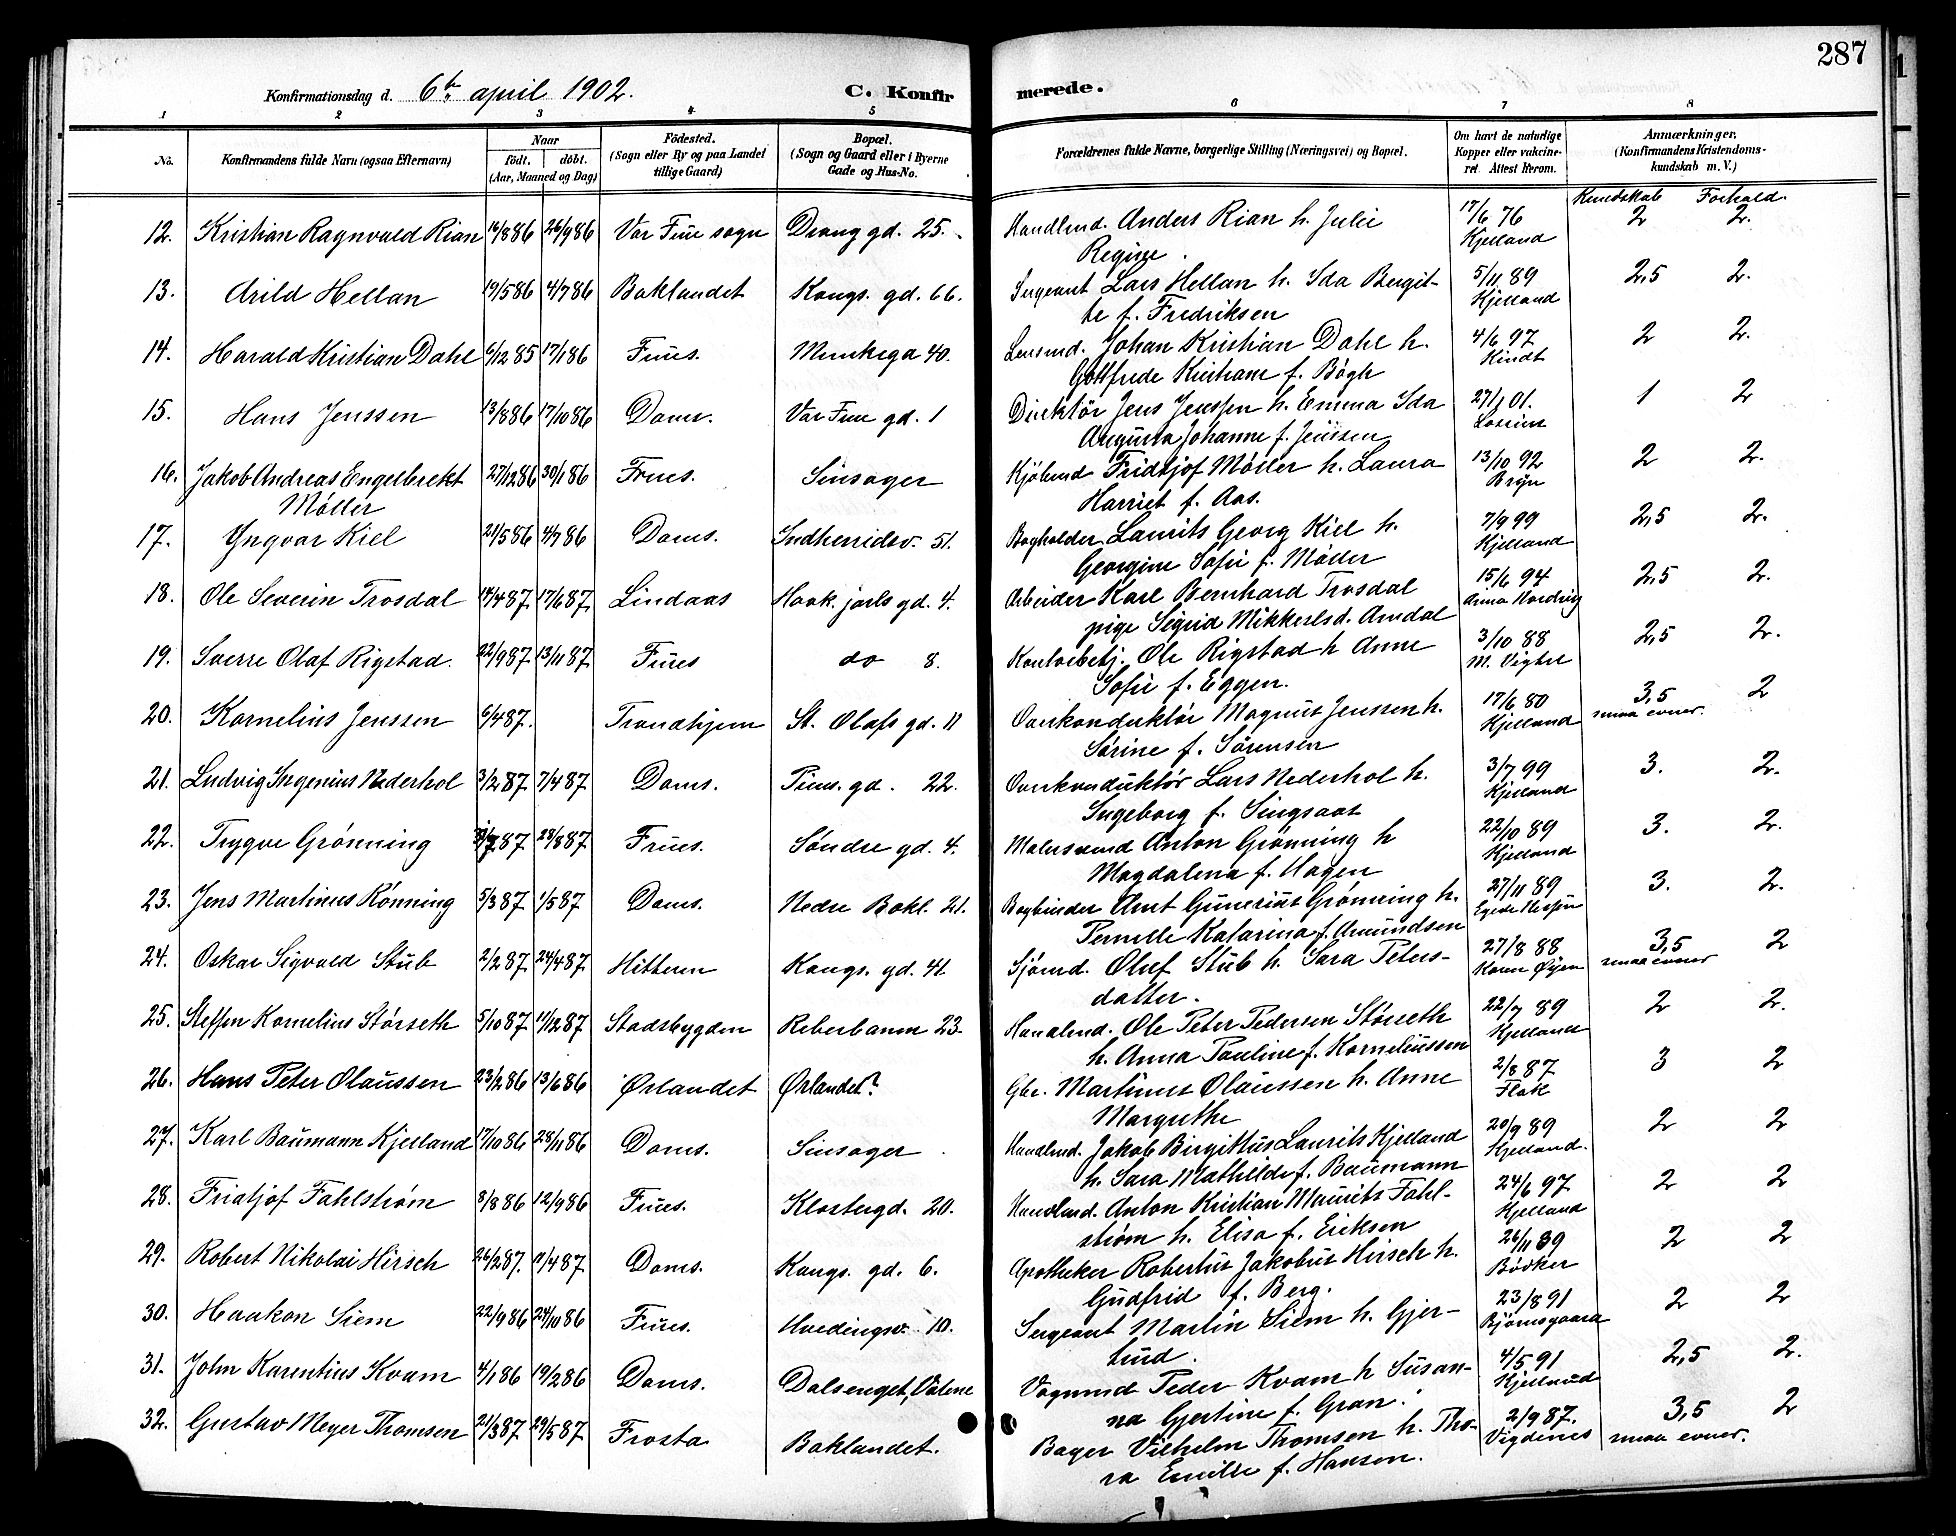 287
Konfirmationsdag d. 6te april 1902. C. Konfirmerede.
1 2 3 4 5 6 7 8
No. Konfirmandens fulde Navn (ogsaa Efternavn) Naar født. døbt. (Aar, Maaned og Dag) Fødested. (Sogn eller By og paa Landet tillige Gaard) Bopæl. (Sogn og Gaard eller i Byerne Gade og Hus-No. Forældrenes fulde Navne, borgerlige Stilling (Næringsvei) og Bopæl. Om havt de naturlige Kopper eller vakcineret. Attest herom. Anmærkninger. (Konfirmandens Kristendomskundskab m. V.)
Kundskab Forhold.
12. Kristian Ragnvald Rian 14/886 26/986 Vor Frue sogn Dronng gd. 25. Handlmd. Anders Rian h. Julie 17/6 76 2 2.
Regine. Kjelland
13. Arild Hellan 19/586 4/786 Baklandet Kongs. gd. 66. Sergeant Lars Hellan h. Ida Bergit- 5/11 89 2,5 2.
te f. Fredriksen Kjelland
14. Harald Kristian Dahl 6/1285 17/186 Frues. Munkegd 40. Lensmd. Johan Kristian Dahl h. 4/6 97 2 2.
Gottfrede Kristiane f. Bøgh Kindt
15. Hans Jenssen 13/886 17/1086 Doms. Vor Frue gd. 1 Direktör Jens Jenssen h. Emma Ida 27/1 01. 1 2
Augusta Johanne f. Jenssen
16. Jakob Andreas Engelbrekt 27/1286 30/186 Frues. Sinsager Kjöbmd Fridtjof Möller h. Laura 13/10 92 2 2.
Møller Harriet f. Aas. Bryn
17. Yngvar Kiel 21/586 4/786 Doms. Indherredsv. 51. Bogholder Laurits Georg Kiel h. 7/9 99 2,5 2.
Georgine Sofie f. Møller Kjelland
18. Ole Severin Trosdal 14/487 17/687 Lindaas Haak. jarls gd. 4. Arbeider Karl Bernhard Trosdal 15/6 94 2,5 2.
pige Sigrid Mikkelsd. Arndal Anna Nordvig
19. Sverre Olaf Rigstad. 22/987 13/1187 Frues do 8. Kontorbetj. Ole Rigstad h Anne 3/10 88 2,5 2.
Sofie f. Eggen. M. Vigtel
20. Kornelius Jenssen 6/487. Trondhjem St. Olafs gd. 11 Overkonduktør Magnus Jenssen h. 17/6 80 3,5 2
Sørine f. Sørensen Kjelland smaa evner.
21. Ludvig Ingenius Nederhol 3/287 7/487 Doms. Prins. gd. 22. Overkonduktør Lars Nederhol h. 3/7 99 3. 2.
Ingeborg f. Singsaas Kjelland
22. Trygve Grønning 87 28/887 Frues. Søndre gd. 4. Malersvend Anton Grønning h 22/10 89 3. 2.
Magdalena f. Hagen Kjelland
23. Jens Martinus Rønning 5/387 1/587 Doms. Nedre Bakl. 21. Bogbinder Arnt Gunerius Grønning h. 27/11 89 3. 2.
Pernille Katarina f. Amundsen Egede Nissen
24. Oskar Sigvald Stub 2/287 24/487 Hitteren Kongs. gd. 41. Sjømd. Oluf Stub h. Sara Peters- 27/8 88 3,5 2
datter. Karen Øyen smaa evner
25. Steffen Kornelius Störseth 5/1087 11/1287 Stadsbygden Reberbanen 23. Handlmd. Ole Peter Pedersen Störseth 22/7 89 2 2.
h. Anna Pauline f. Korneliussen Kjelland
26. Hans Peter Olaussen 23/286 13/686 Ørlandet Ørlandet? Gbr. Martinus Olaussen h. Anne 2/8 87 3 2
Margrethe Flak
27. Karl Baumann Kjelland 17/1086 28/1186 Doms. Sinsager Handlmd. Jakob Birgithus Laurits Kjelland 20/9 89 2 2
h. Sara Mathilde f. Baumann Kjelland.
28. Fridtjof Fahlstrøm 8/886 12/986 Frues. Klostergd. 20. Handlmd. Anton Kristian Maurits Fahl- 24/6 97 2 2
strøm h. Elisa f. Eriksen Kjelland
29. Robert Nikolai Hirsch 26/287. 11/487 Doms. Kongs. gd. 6. Apotheker Robertus Jakobus Hirsch h. 26/11 89 2 2
Gudfrid f. Berg. Bödker
30. Haakon Siem 22/986 24/1086 Frues. Hvedingsv. 10. Sergeant Martin Siem h. Gjer- 23/8 91 2 2
trud. Bjørnsgaard
31. John Karentius Kvam 4/186 19/286 Doms. Dalsenget, Vålene Vognmd Peder Kvam h Susan- 4/5 91 2,5 2.
na Gjertine f. Gran. Kjelland
32. Gustav Meyer Thomsen 21/387 29/587 Frosta Baklandet. Bager Vilhelm Thomsen h. Tho- 2/9 87. 3,5 2
ra Emilie f. Hansen. Vigdenes smaa evner.